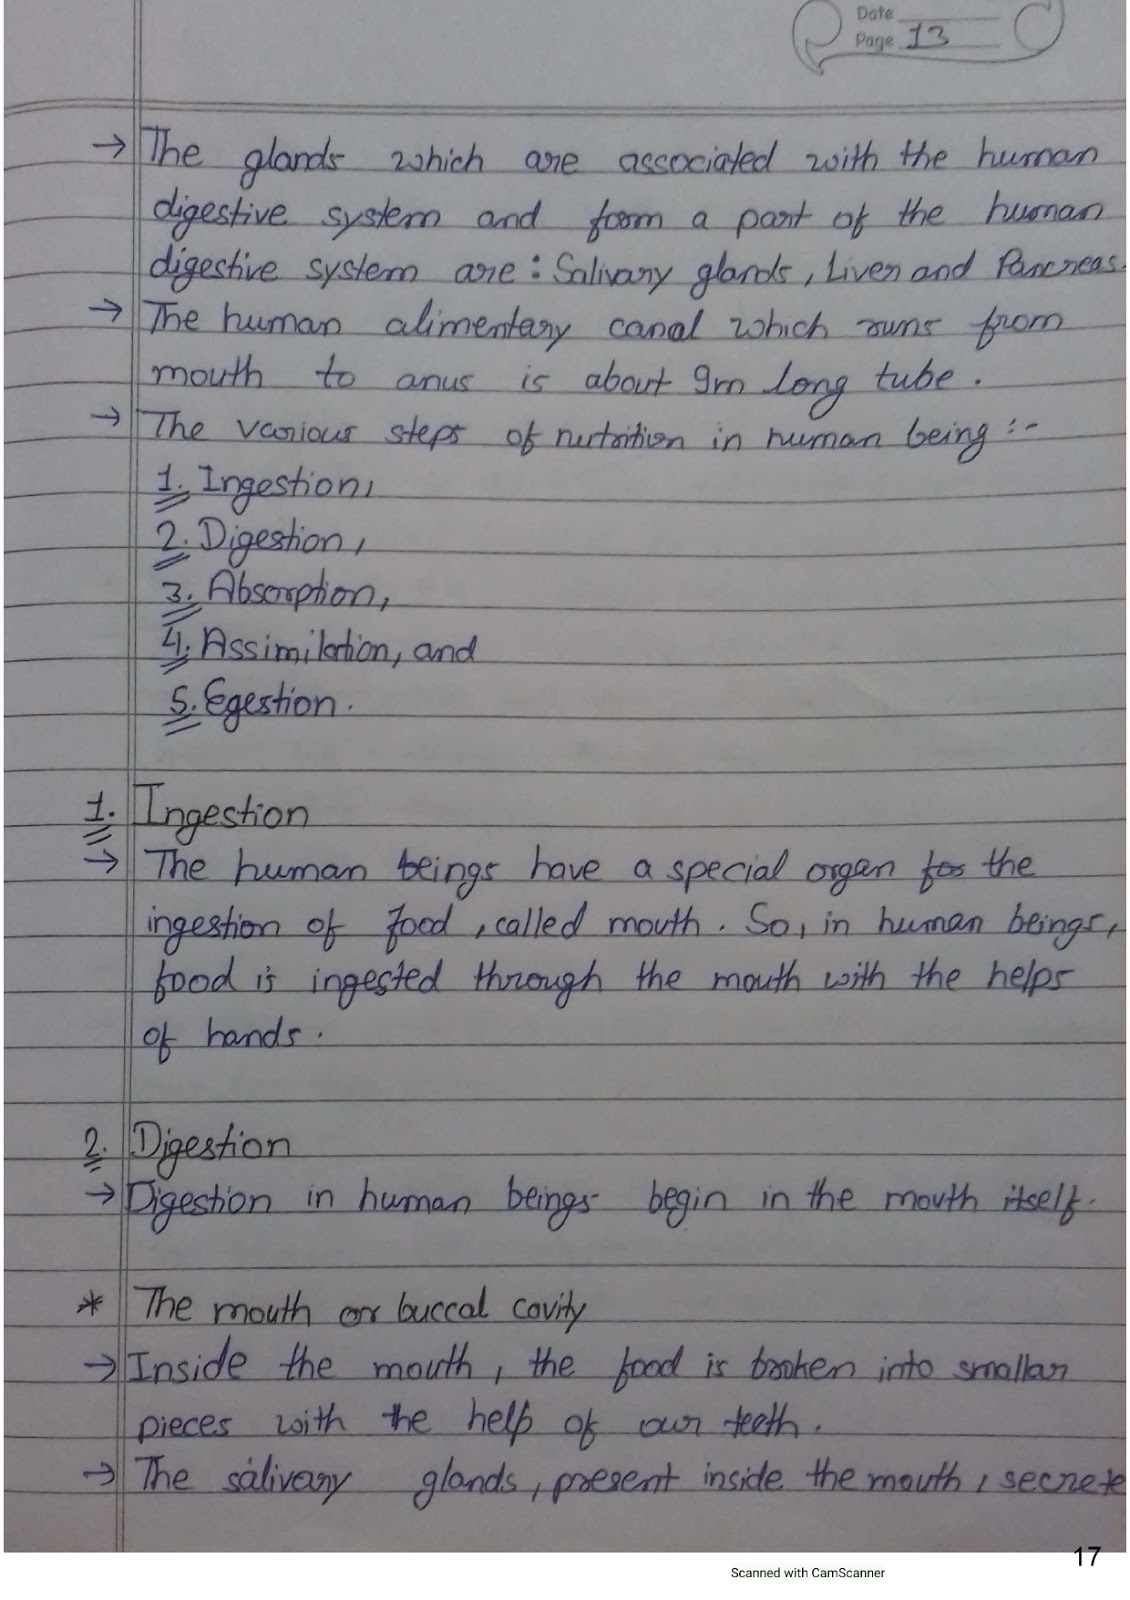 Date
Page 13
→ The glands which are associated with the human
digestive system and form a part of the human
digestive system are: Salivary glands, Liver and Pancreas.
→ The human alimentary canal which runs from
mouth to anus is about 9m long tube.
→ The various steps of nutrition in human being :-
1. Ingestion,
2. Digestion,
3. Absorption,
4. Assimilation, and
5. Egestion.
1. Ingestion
→ The human beings have a special organ for the
ingestion of food, called mouth. So, in human beings,
food is ingested through the mouth with the helps
of hands.
2. Digestion
→ Digestion in human beings begin in the mouth itself.
* The mouth or buccal cavity
→ Inside the mouth, the food is broken into smallar
pieces with the help of our teeth.
→ The salivary glands, present inside the mouth, secrete
17
Scanned with CamScanner